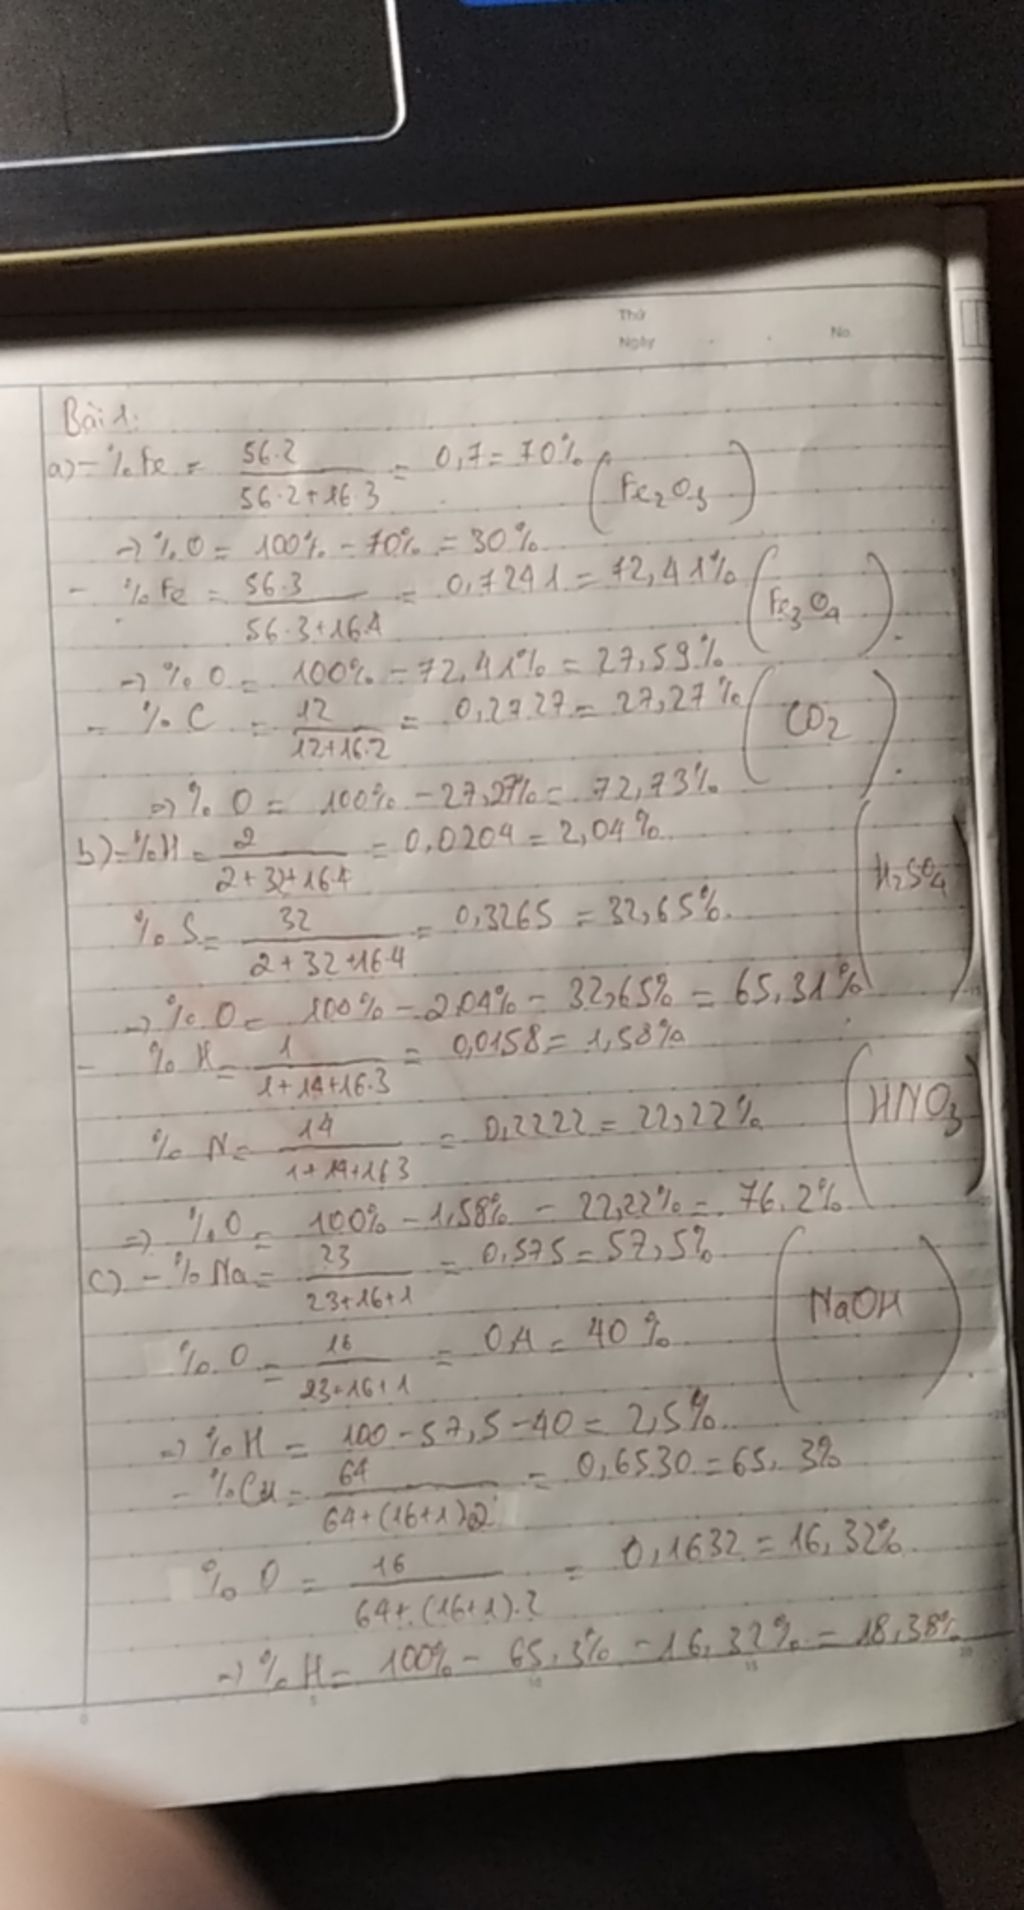 Thứ
Ngày No.
Bài 1:
a) - % Fe = 56.2 / 56.2+16.3 = 0,7 = 70% (Fe2O3)
→ % O = 100% - 70% = 30%
- % Fe = 56.3 / 56.3+16.4 = 0,7241 = 72,41% (Fe3O4)
→ % O = 100% - 72,41% = 27,59%
- % C = 12 / 12+16.2 = 0,2727 = 27,27% (CO2)
=> % O = 100% - 27,27% = 72,73%
b) - % H = 2 / 2+32+16.4 = 0,0204 = 2,04% (H2SO4)
% S = 32 / 2+32+16.4 = 0,3265 = 32,65%
→ % O = 100% - 2,04% - 32,65% = 65,31%
- % H = 1 / 1+14+16.3 = 0,0158 = 1,58% (HNO3)
% N = 14 / 1+14+16.3 = 0,2222 = 22,22%
=> % O = 100% - 1,58% - 22,22% = 76,2%
c) - % Na = 23 / 23+16+1 = 0,575 = 57,5% (NaOH)
% O = 16 / 23+16+1 = 0,4 = 40%
=> % H = 100 - 57,5 - 40 = 2,5%
- % Cu = 64 / 64+(16+1).2 = 0,6530 = 65,3%
% O = 16 / 64+(16+1).2 = 0,1632 = 16,32%
→ % H = 100% - 65,3% - 16,32% = 18,38%
0 5 10 15 20